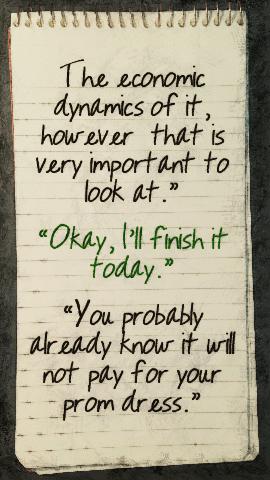 The economic
dynamics of it,
however that is
very important to
look at."
"Okay, I'll finish it
today."
"You probably
already know it will
not pay for your
prom dress."